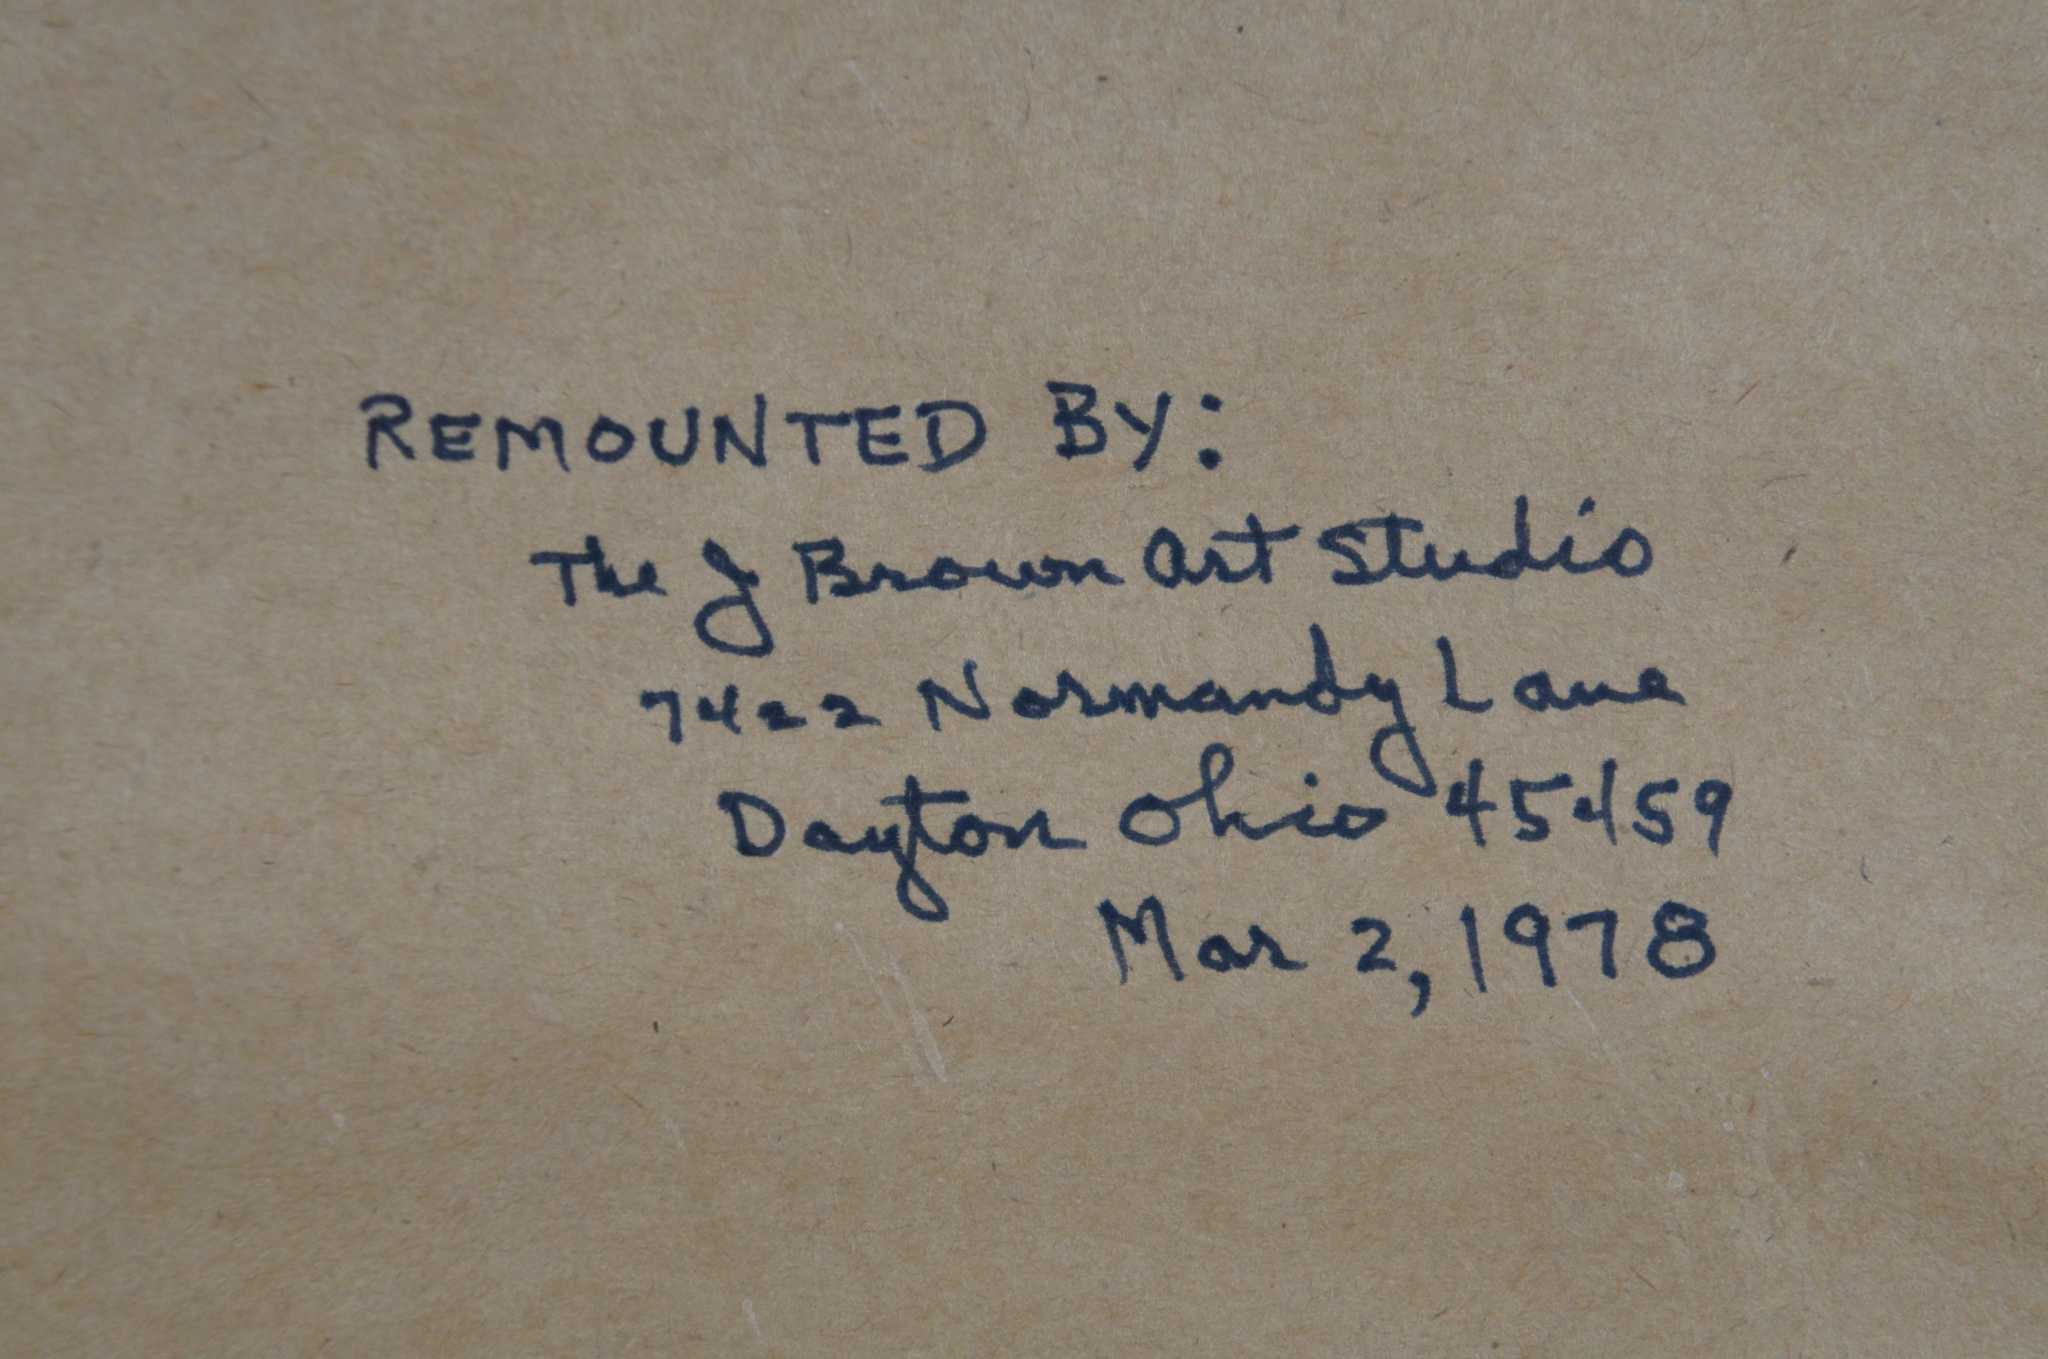 REMOUNTED BY:
The J Brown Art Studio
7422 Normandy Lane
Dayton Ohio 45459
Mar 2, 1978